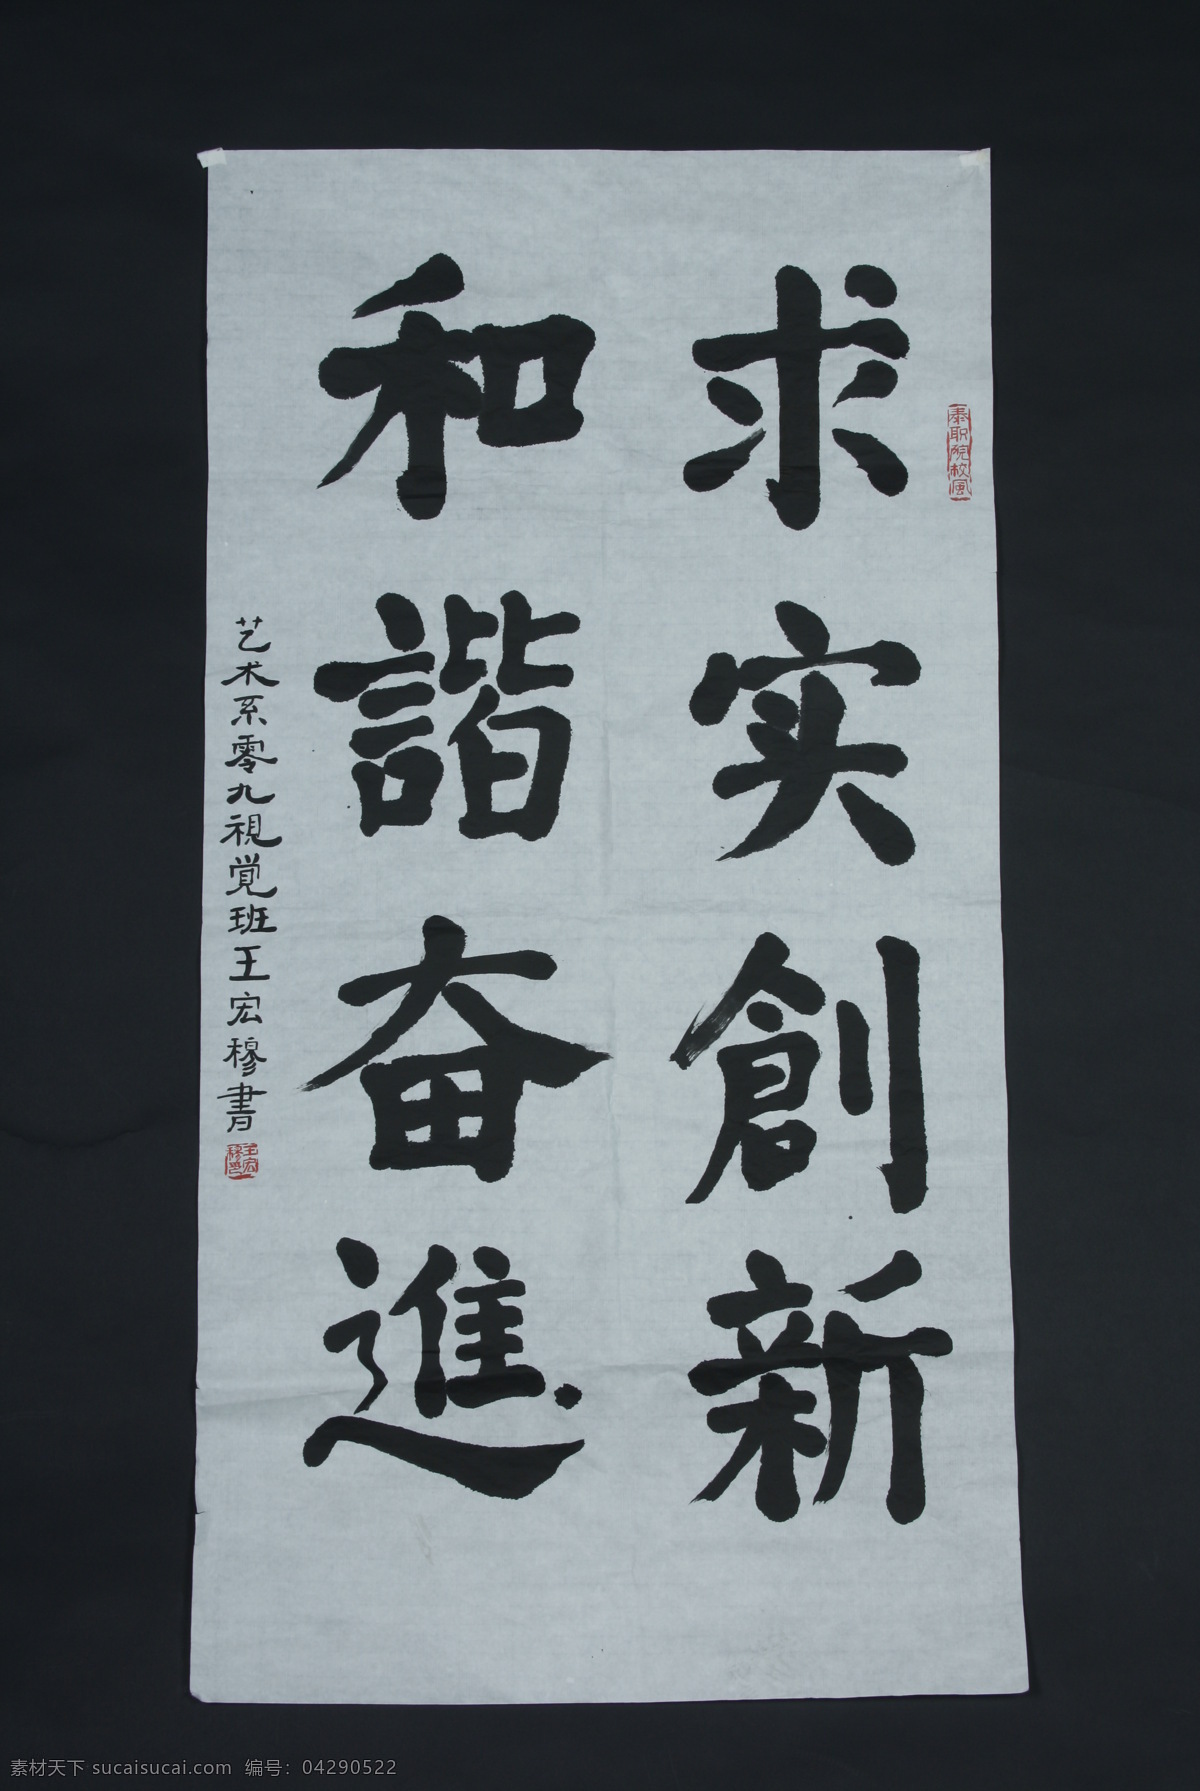 求实創新
和諧奋進
艺术系零九視覚班王宏穆書
泰职院校風
王宏穆印
素材天下 sucaisucai.com 编号：04290522